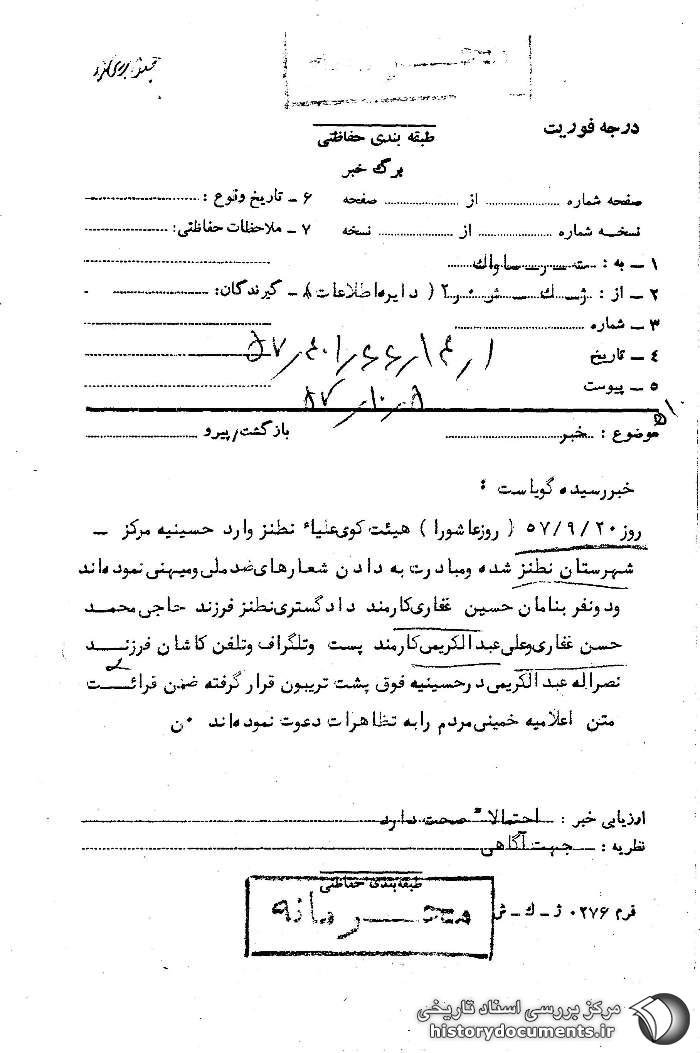 محرمانه
درجه فوریت
طبقه بندی حفاظتی
برگ خبر
صفحه شماره .......... از .......... صفحه
۶ ـ تاریخ وقوع :
نسخه شماره .......... از .......... نسخه
۷ ـ ملاحظات حفاظتی:
۱ ـ به : ساواک
۲ ـ از : ژ ـ ک ـ ش (دایره اطلاعات) ۸ ـ گیرندگان:
۳ ـ شماره
۴ ـ تاریخ
۵ ـ پیوست
۵۷/۱۰/۵
موضوع : خبر
بازگشت/پیرو
خبر رسیده گویاست :
روز ۵۷/۹/۲۰ ( روز عاشورا ) هیئت کوی علیاء نطنز وارد حسینیه مرکز ـ
شهرستان نطنز شده و مبادرت به دادن شعارهای ضد ملی و میهنی نموده اند
و دو نفر بنامان حسین غفاری کارمند دادگستری نطنز فرزند حاجی محمد
حسن غفاری و علی عبدالکریمی کارمند پست و تلگراف و تلفن کاشان فرزنـد
نصراله عبدالکریمی در حسینیه فوق پشت تریبون قرار گرفته ضمن قرائـت
متن اعلامیه خمینی مردم را به تظاهرات دعوت نموده اند ۰ن
ارزیابی خبر : احتمالا" صحت دارد
نظریه : جهت آگاهی
طبقه بندی حفاظتی
محرمانه
فرم ۰۲۷۶ ژ ـ ک ـ ش
مرکز بررسی اسناد تاریخی
historydocuments.ir